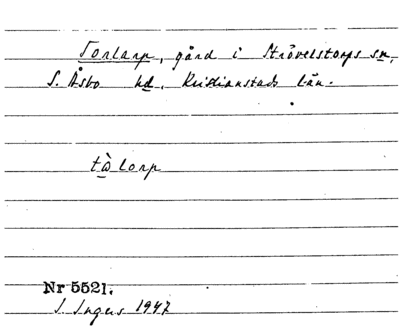 Torlarp, gård i Strövelstorps sn,
S. Åsbo hd, Kristianstads län.
tὰlorp
Nr 5521.
I. Ingers 1947